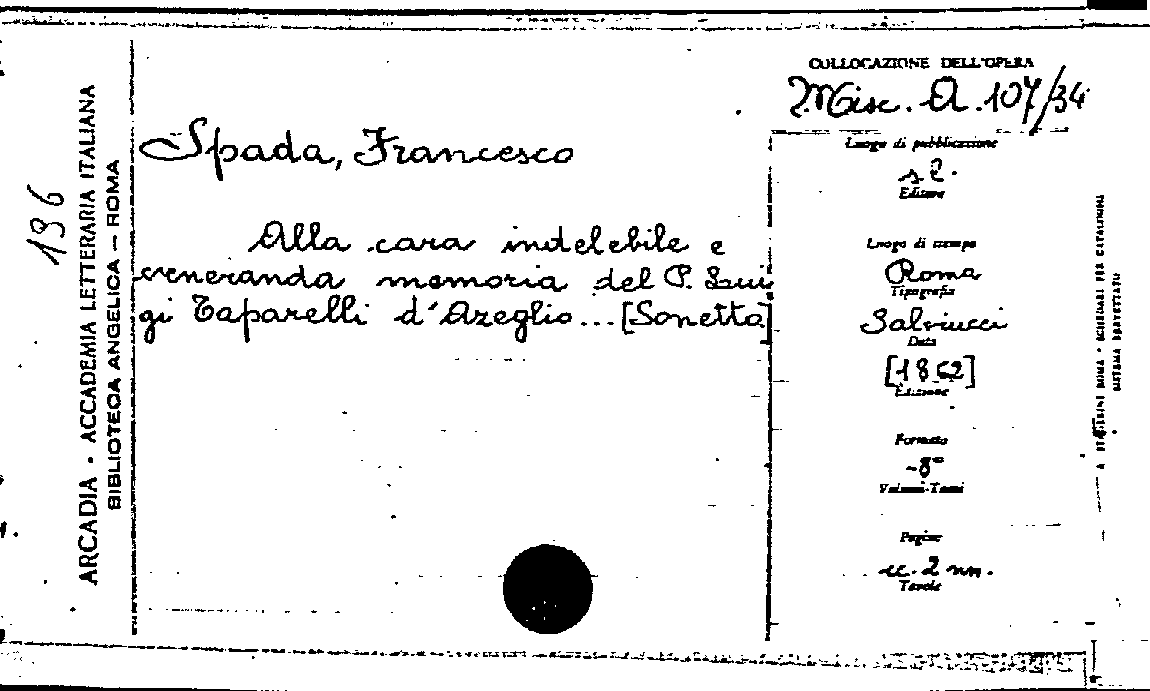 COLLOCAZIONE DELL'OPERA
Misc. A. 107/34
Spada, Francesco
Alla cara indelebile e
veneranda memoria del P. Lui
gi Taparelli d'Azeglio...[Sonetto]
Luogo di pubblicazione
s.l.
Editore
Luogo di stampa
Roma
Tipografia
Salviucci
Data
[1862]
Edizione
Formato
-8°
Volumi-Tomi
Pagine
cc. 2 nn.
Tavole
196
ARCADIA - ACCADEMIA LETTERARIA ITALIANA
BIBLIOTECA ANGELICA — ROMA
ROMA - SCHEDARI PER CATALOGHI
SISTEMA BREVETTATO